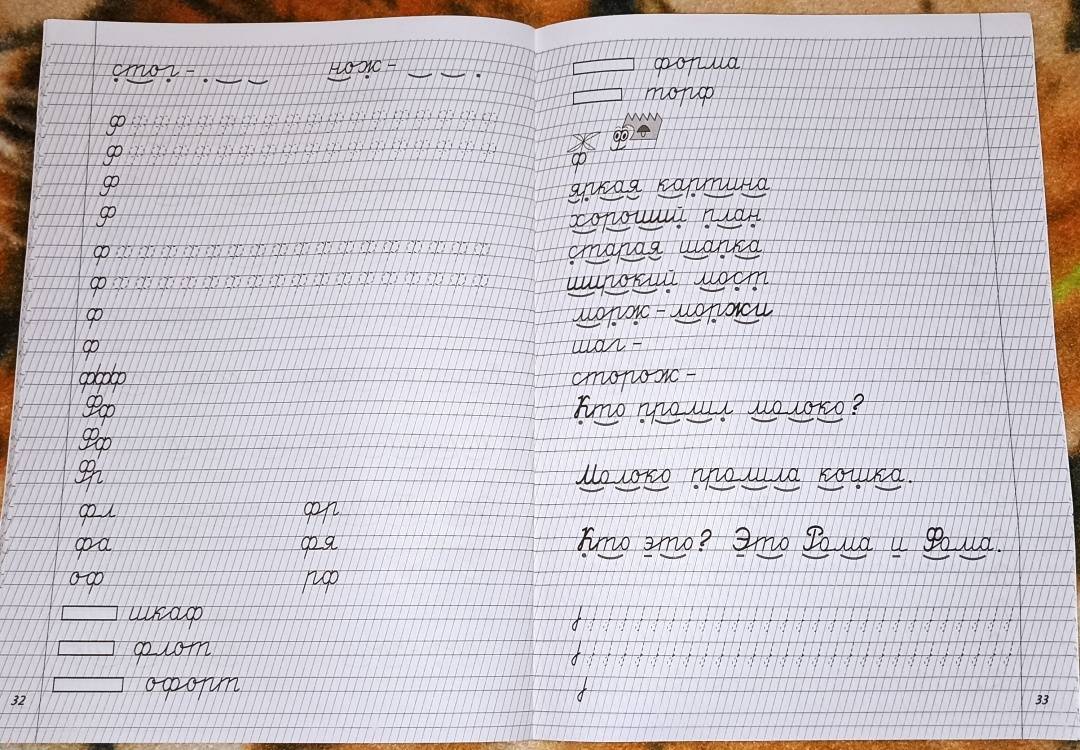 стог - нож -
ф
ф
ф
ф
ф
ф
ф
ф
ффф
Фф
Фф
Фр
фл фр
фа фя
оф рф
шкаф
флот
офорт
32
форма
торф
ф
яркая картина
хороший план
старая шапка
широкий мост
морж - моржи
шаг -
сторож -
Кто пролил молоко?
Молоко пролила кошка.
Кто это? Это Рома и Фома.
33